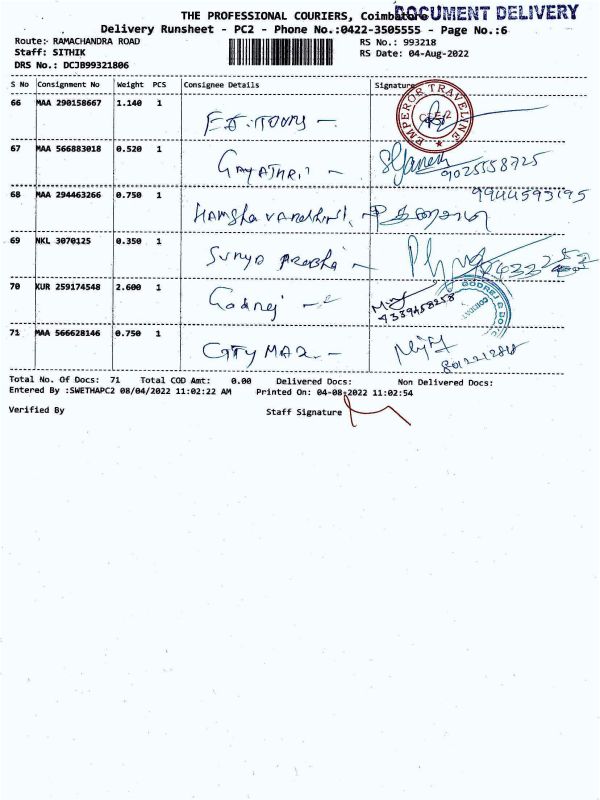 THE PROFESSIONAL COURIERS, Coimbatore
DOCUMENT DELIVERY
Delivery Runsheet - PC2 - Phone No.:0422-3505555 - Page No.:6
Route: RAMACHANDRA ROAD
RS No.: 993218
Staff: SITHIK
RS Date: 04-Aug-2022
DRS No.: DCJB99321806
S No Consignment No Weight PCS Consignee Details Signature
66 MAA 290158667 1.140 1
EMPEROR TRAVELYNE
67 MAA 566883018 0.520 1 GAYATHRI - 9025558725
9944593195
68 MAA 294463266 0.750 1 HAMSHA VARDHINI
69 NKL 3070125 0.350 1 Surya Prabha -
70 KUR 259174548 2.600 1 Godrej
GODREJ & BOYCE
71 MAA 566628146 0.750 1 CITY MAX -
Total No. Of Docs: 71 Total COD Amt: 0.00 Delivered Docs: Non Delivered Docs:
Entered By :SWETHAPC2 08/04/2022 11:02:22 AM Printed On: 04-08-2022 11:02:54
Verified By Staff Signature